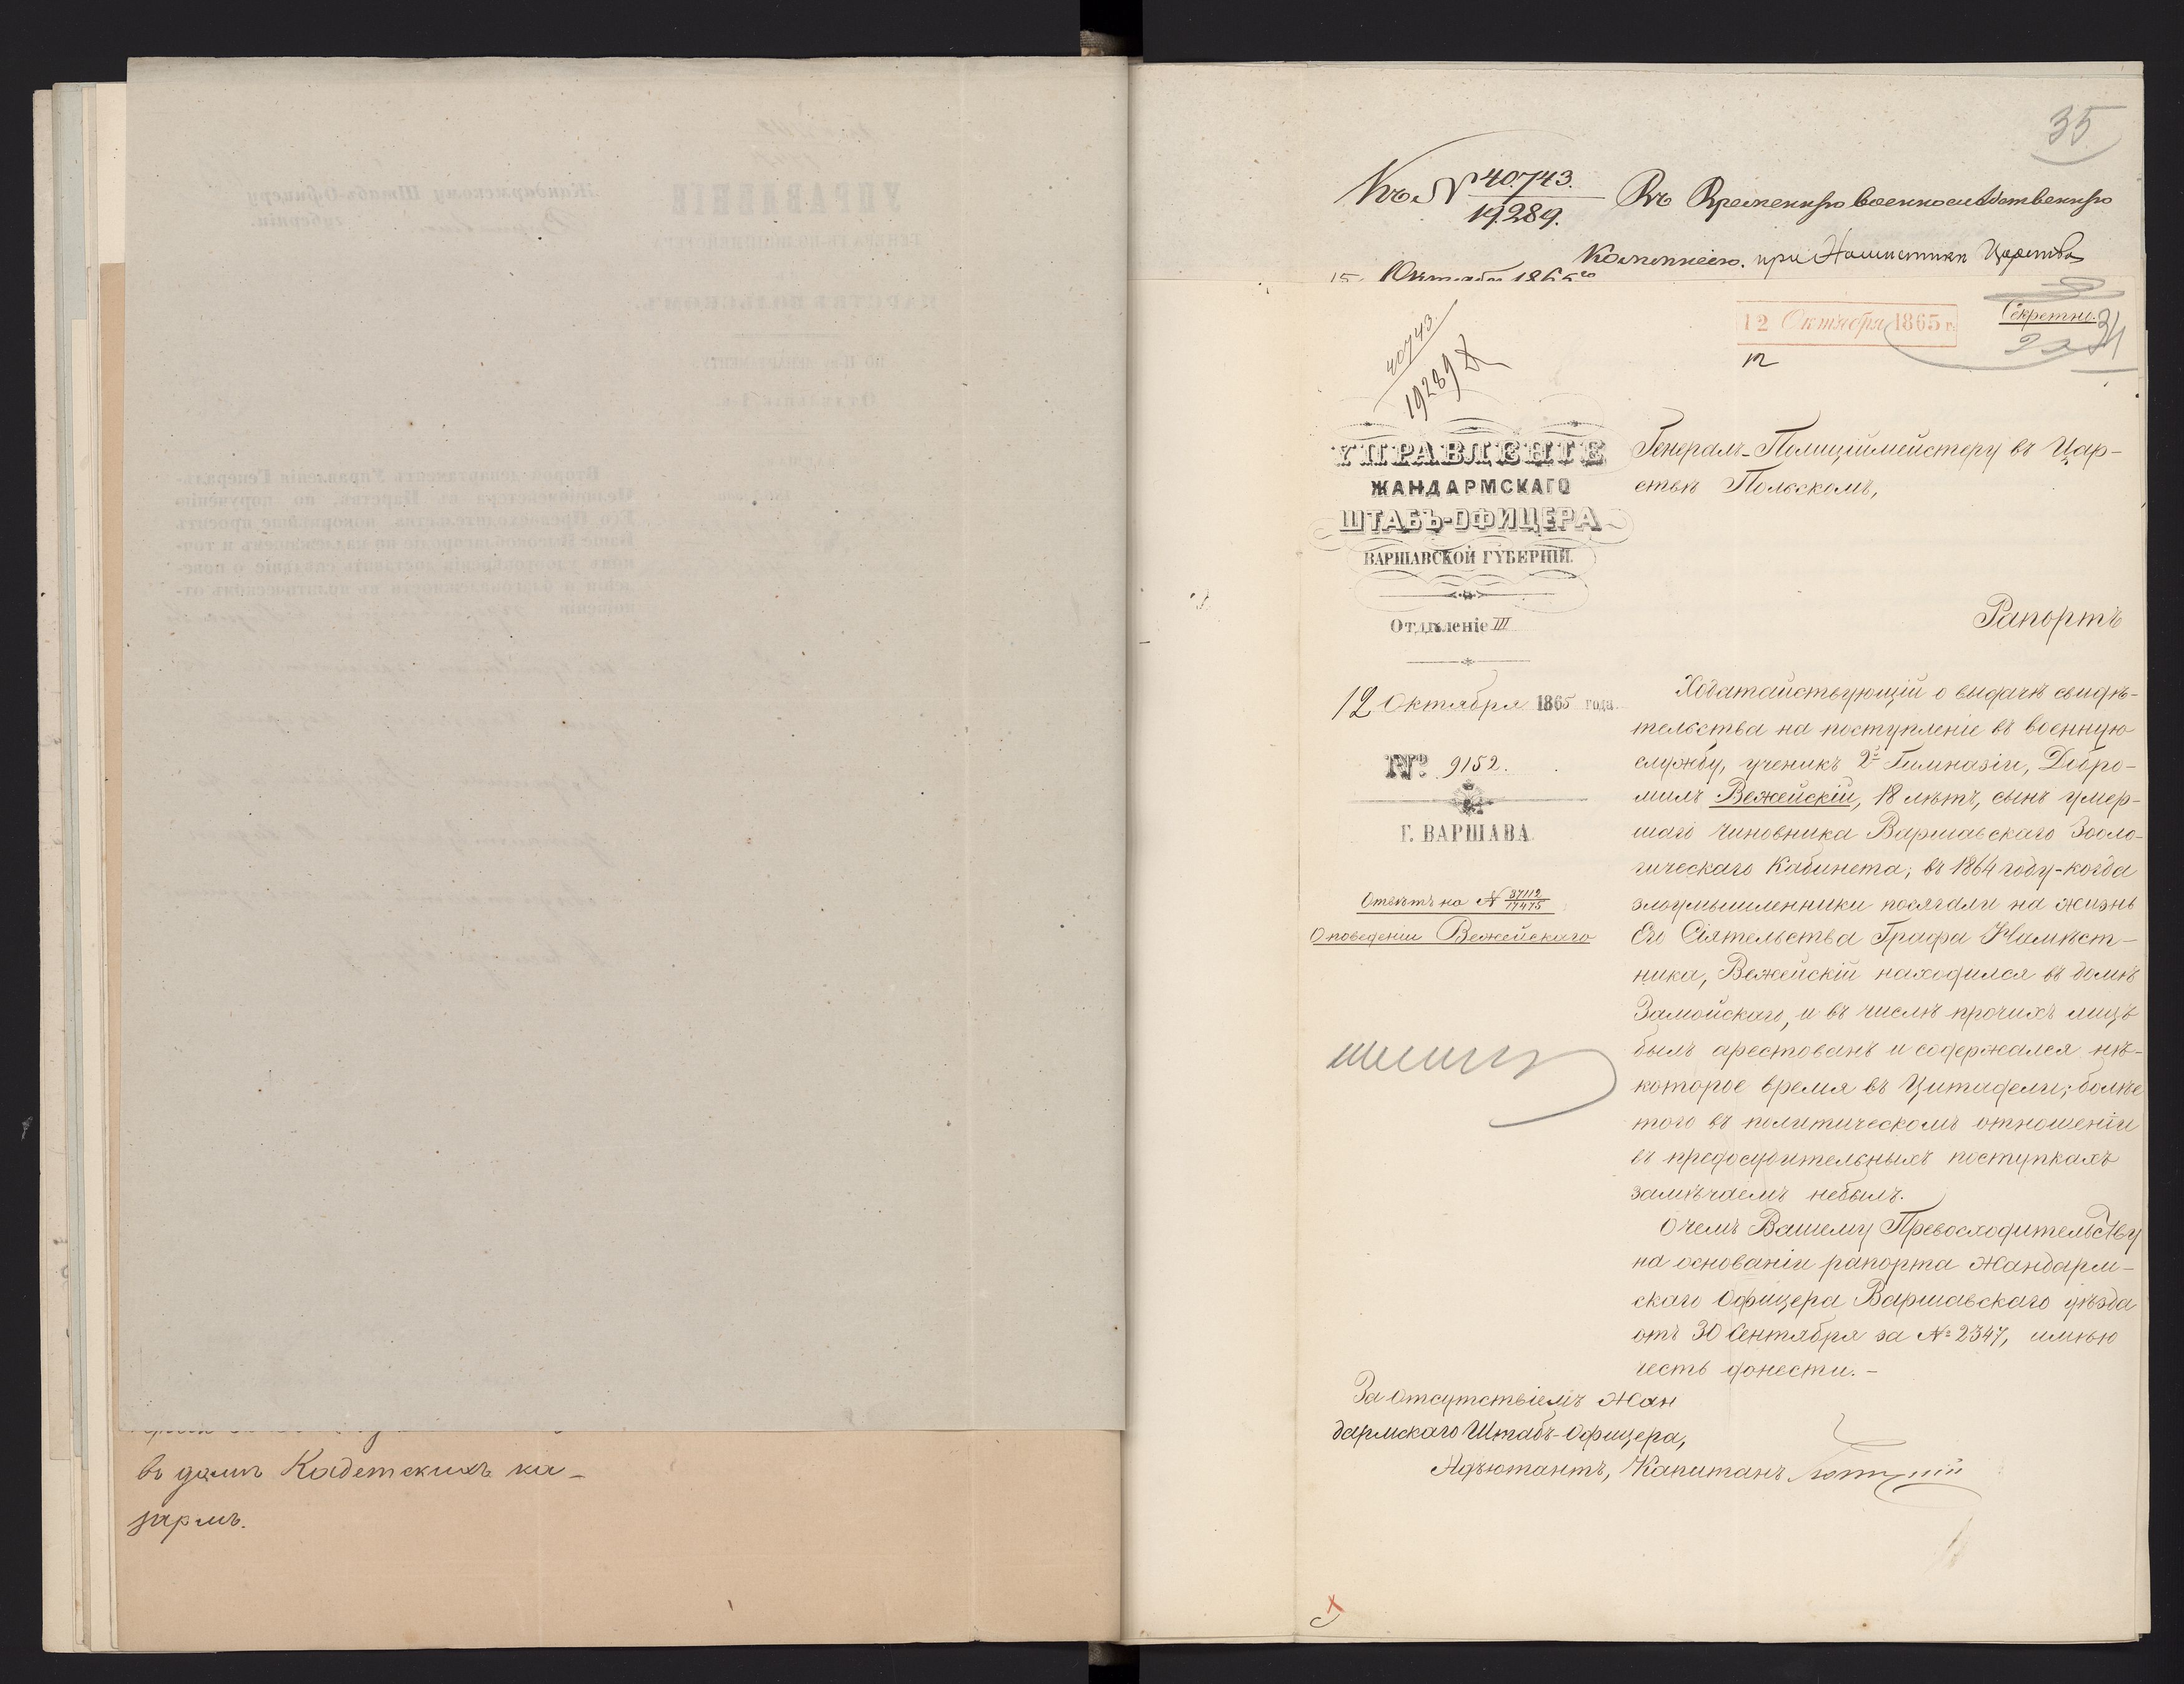 въ домѣ Кадетскихъ ка-
зармъ.
35
Къ № 40743.
19289.
Въ Временную военнослѣдственную
Коммиссію. при Намѣстникѣ Царства
15 Октября 1865 го
40743.
19289
12 Октября 1865 г.
Секретно.
34
УПРАВЛЕНІЕ
ЖАНДАРМСКАГО
ШТАБЪ-ОФИЦЕРА
ВАРШАВСКОЙ ГУБЕРНІИ.
Отдѣленіе III
12 Октября 1865 года.
№ 9152.
Г. ВАРШАВА.
Отвѣтъ на № 37112
17475
О поведеніи Вежейскаго
Генералъ-Полиціймейстеру въ Цар-
ствѣ Польскомъ,
Рапортъ
Ходатайствующій о выдачѣ свидѣ-
тельства на поступленіе въ военную
службу, ученикъ 2й Гимназіи, Добро-
милъ Вежейскій, 18 лѣтъ, сынъ умер-
шаго чиновника Варшавскаго Зооло-
гическаго Кабинета; въ 1864 году-когда
злоумышленники посягали на жизнь
Его Сіятельства Графа Намѣст-
ника, Вежейскій находился въ домѣ
Замойскаго, и въ числѣ прочихъ лицъ
былъ арестованъ и содержался нѣ-
которое время въ Цитадели; болѣе
того въ политическомъ отношеніи
въ предосудительныхъ поступкахъ
замѣчаемъ небылъ.
О чемъ Вашему Превосходительству
на основаніи рапорта Жандарм-
скаго Офицера Варшавскаго уѣзда
отъ 30 Сентября за № 2347, имѣю
честь донести.-
За отсутствіемъ Жан
дармскаго Штабъ-Офицера,
Адъютантъ, Капитанъ